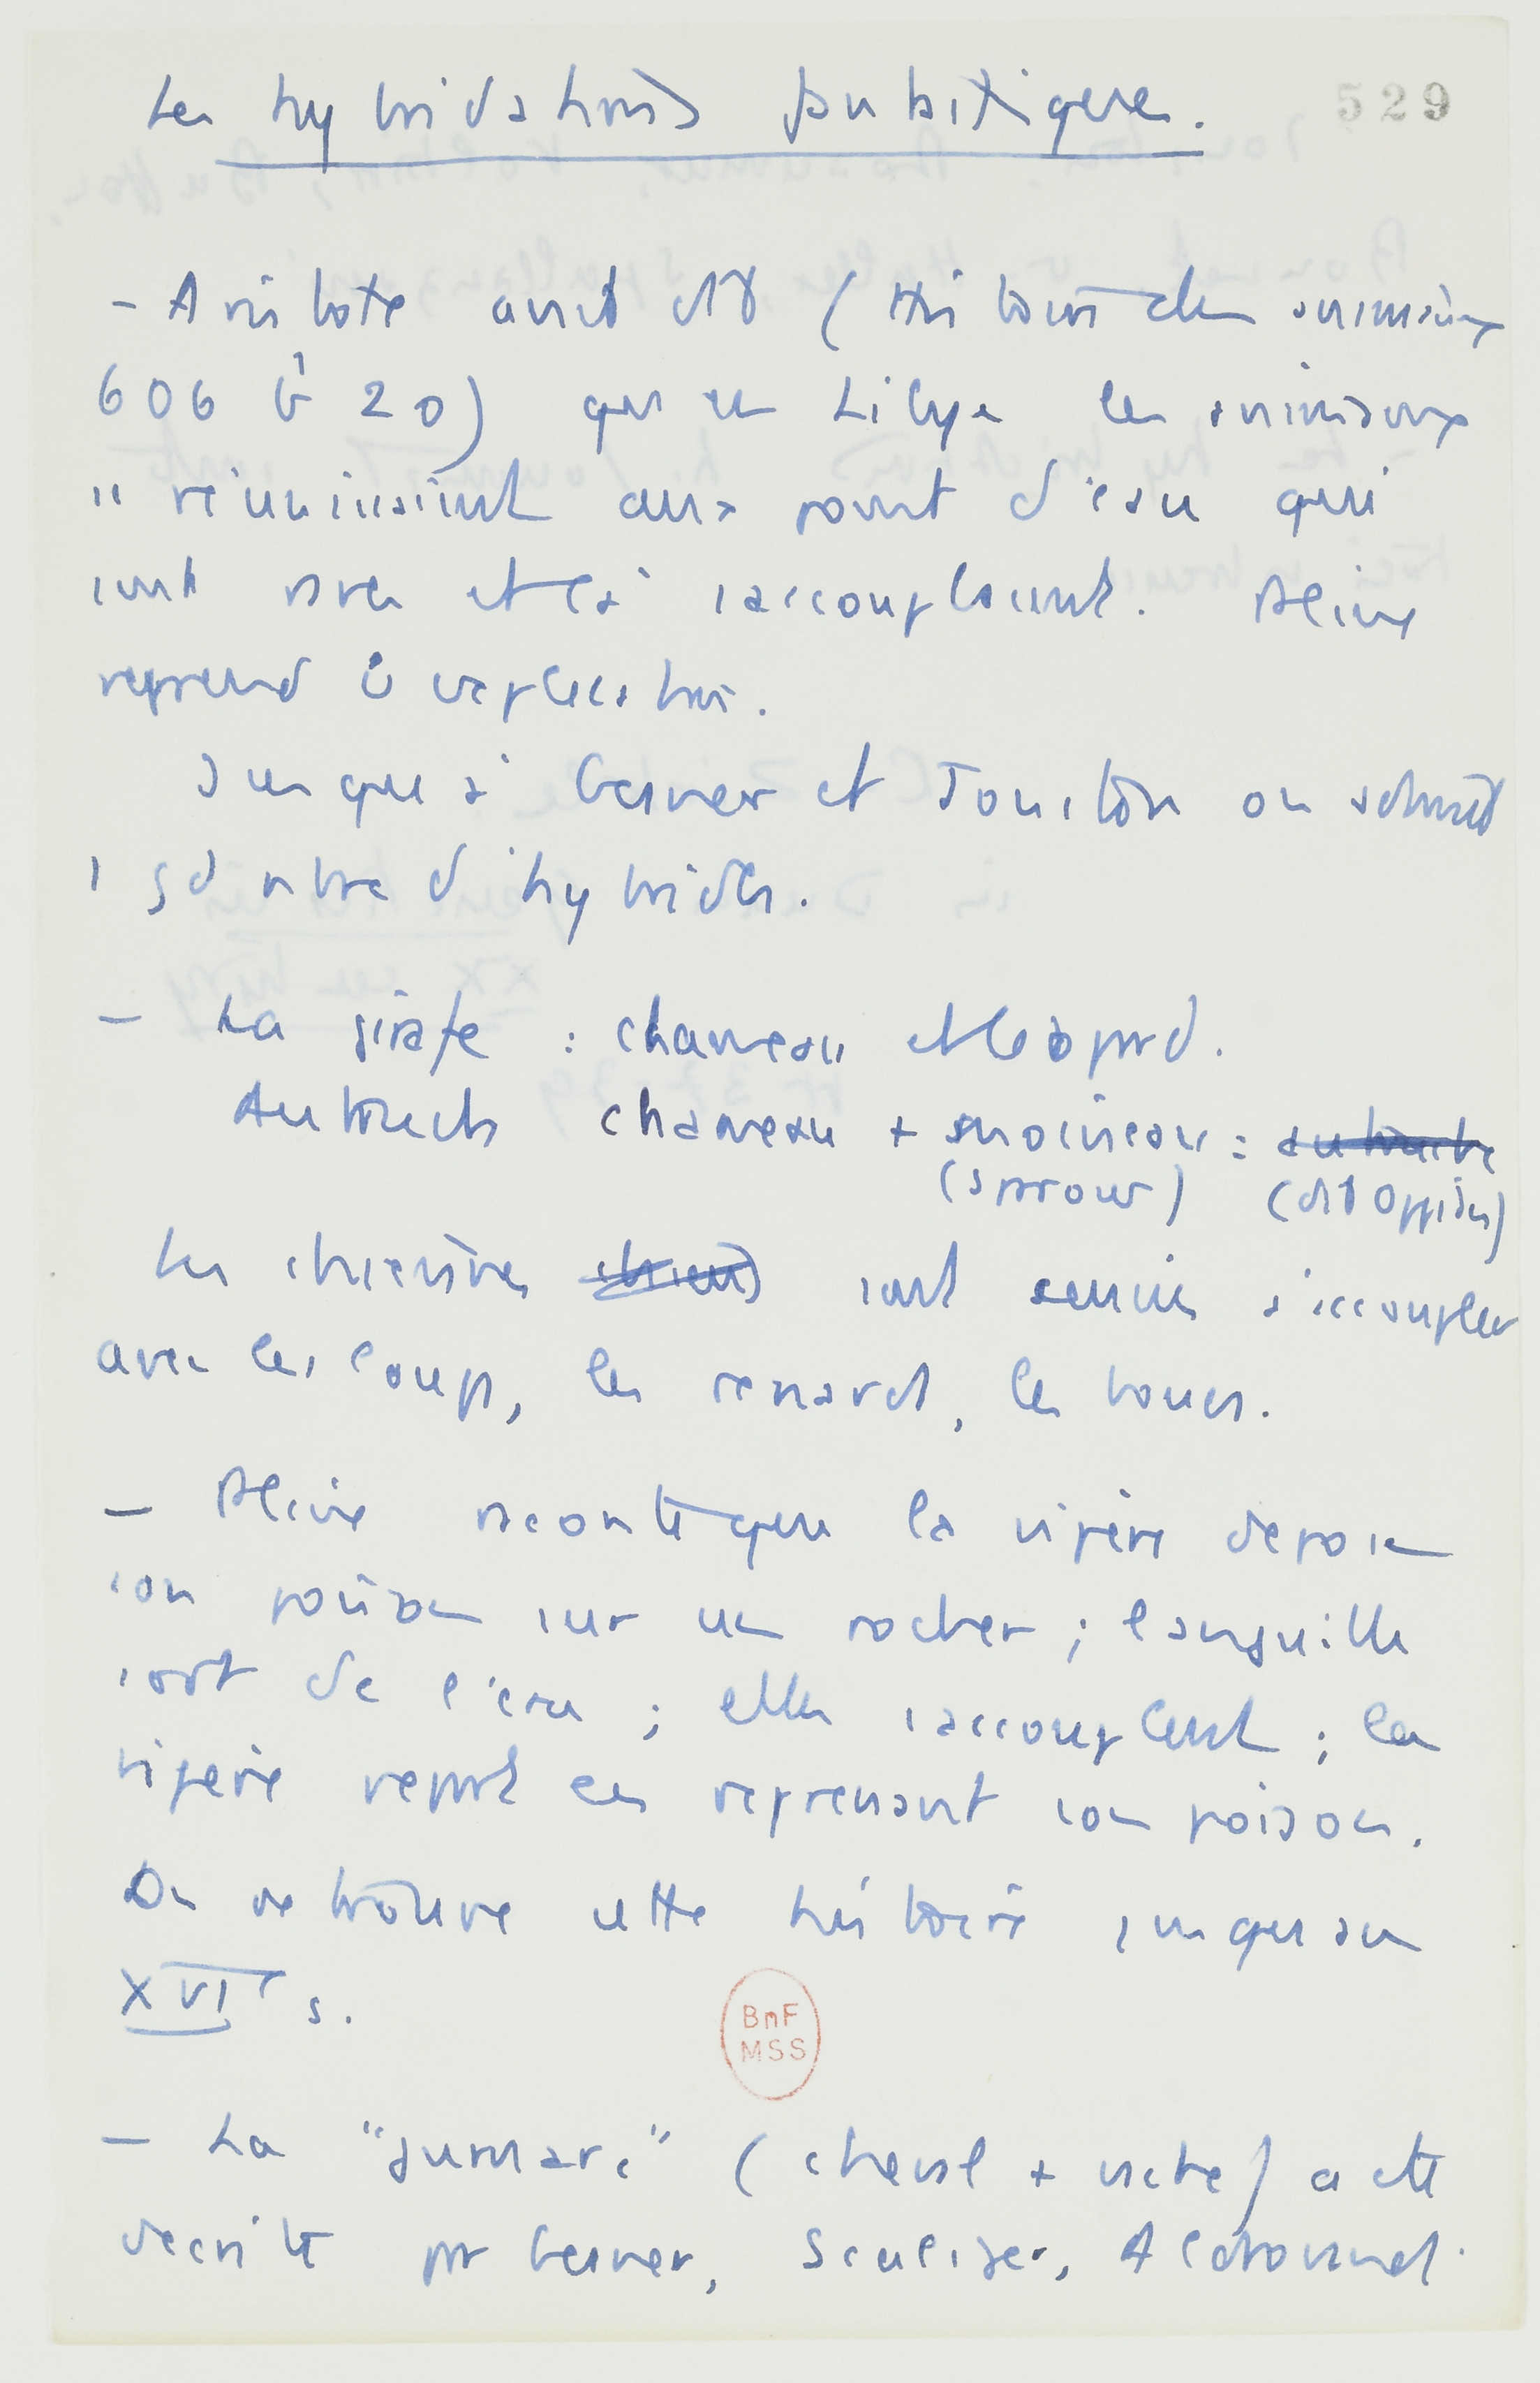 Les hybridations fantastiques.
529
- Aristote avait dit (Histoire des animaux
606 b 20) que en Libye les animaux
se réunissaient aux point d'eau qui
sont rares et là s'accouplaient. Pline
reprend l'explication.
Jusqu'à Gesner et Jonston on admet
d'hybrides.
- La girafe : chameau et léopard.
Autruche chameau + moineau :
(sparrow) (dit Oppien)
Les chiennes sont sensées s'accoupler
avec les loups, les renards, les boucs.
- Pline raconte que la vipère dépose
son poison sur un rocher ; l'anguille
sort de l'eau ; elles s'accouplent ; la
vipère repart en reprenant son poison.
On retrouve cette histoire jusqu'au
XVIe s.
- La "jumare" (cheval + vache) a été
décrite par Gesner, Scaliger, Aldrovandi.
BnF
MSS